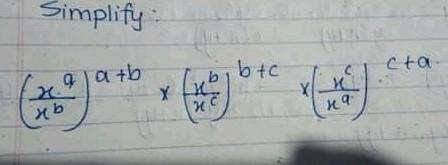 Simplify:
(x^a/x^b)^{a+b} × (x^b/x^c)^{b+c} × (x^c/x^a)^{c+a}